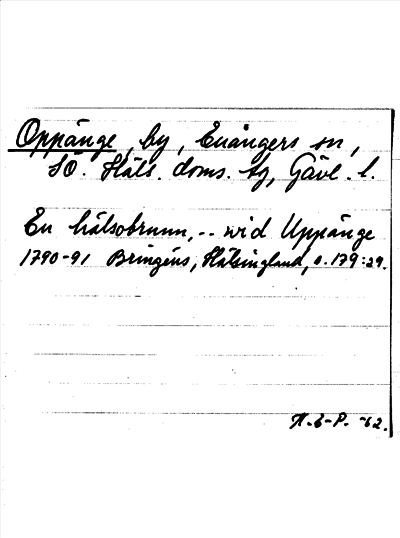 Oppänge, by, Enångers sn,
SÖ. Häls. doms. tg, Gävl. l.
En hälsobrunn, -- wid Uppänge
1790-91 Bringéus, Hälsingland, s. 179:29.
N.E-P. -62.